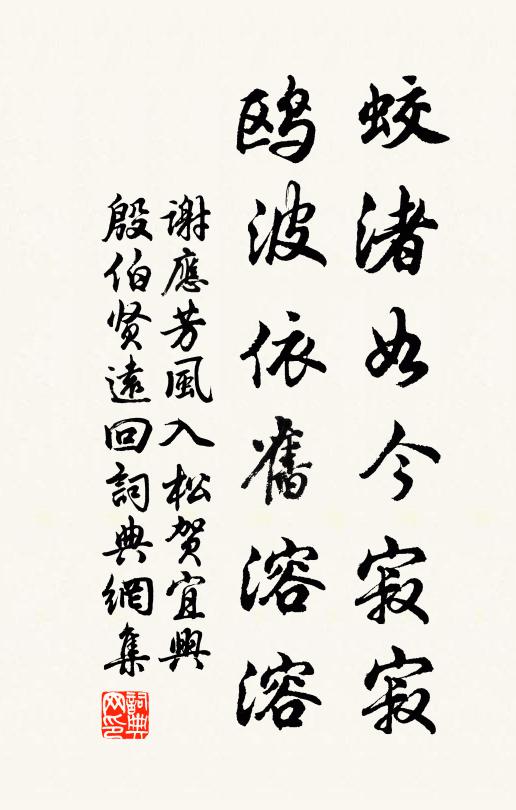 蛟渚如今寂寂
鸥波依舊溶溶
谢應芳風入松贺宜興
殷伯贤遠回詞典網集
詞典网印